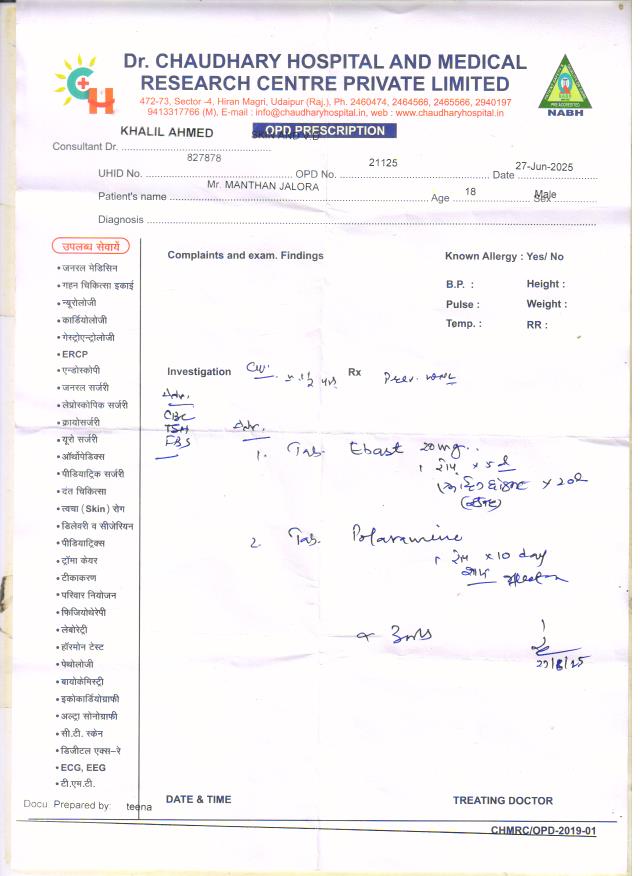 Dr. CHAUDHARY HOSPITAL AND MEDICAL
RESEARCH CENTRE PRIVATE LIMITED
472-73, Sector -4, Hiran Magri, Udaipur (Raj.), Ph. 2460474, 2464566, 2465566, 2940197
9413317766 (M), E-mail : info@chaudharyhospital.in, web : www.chaudharyhospital.in
CH
NABH
KHALIL AHMED
SKIN AND V.D
OPD PRESCRIPTION
Consultant Dr.
827878 21125 27-Jun-2025
UHID No. OPD No. Date
Mr. MANTHAN JALORA 18 Male
Patient's name Age Sex
Diagnosis
उपलब्ध सेवायें
• जनरल मेडिसिन
• गहन चिकित्सा इकाई
• न्यूरोलोजी
• कार्डियोलोजी
• गेस्ट्रोएन्ट्रोलोजी
• ERCP
• एन्डोस्कोपी
• जनरल सर्जरी
• लेप्रोस्कोपिक सर्जरी
• क्रायोसर्जरी
• यूरो सर्जरी
• ऑर्थोपेडिक्स
• पीडियाट्रिक सर्जरी
• दंत चिकित्सा
• त्वचा (Skin) रोग
• डिलेवरी व सीजेरियन
• पीडियाट्रिक्स
• ट्रॉमा केयर
• टीकाकरण
• परिवार नियोजन
• फिजियोथेरेपी
• लेबोरेट्री
• हॉरमोन टेस्ट
• पेथोलोजी
• बायोकेमिस्ट्री
• इकोकार्डियोग्राफी
• अल्ट्रा सोनोग्राफी
• सी.टी. स्केन
• डिजीटल एक्स-रे
• ECG, EEG
• टी.एम.टी.
Complaints and exam. Findings
Known Allergy : Yes/ No
B.P. : Height :
Pulse : Weight :
Temp. : RR :
Investigation Rx
Adv.
CBC
TSH
FBS
Adv.
1. Tab. Ebast 20mg
1 रोज x 5 d
x 20d
2. Tab. Polaramine
1 रोज x 10 day
शाम
27/6/25
DATE & TIME TREATING DOCTOR
Docu Prepared by: teena
CHMRC/OPD-2019-01